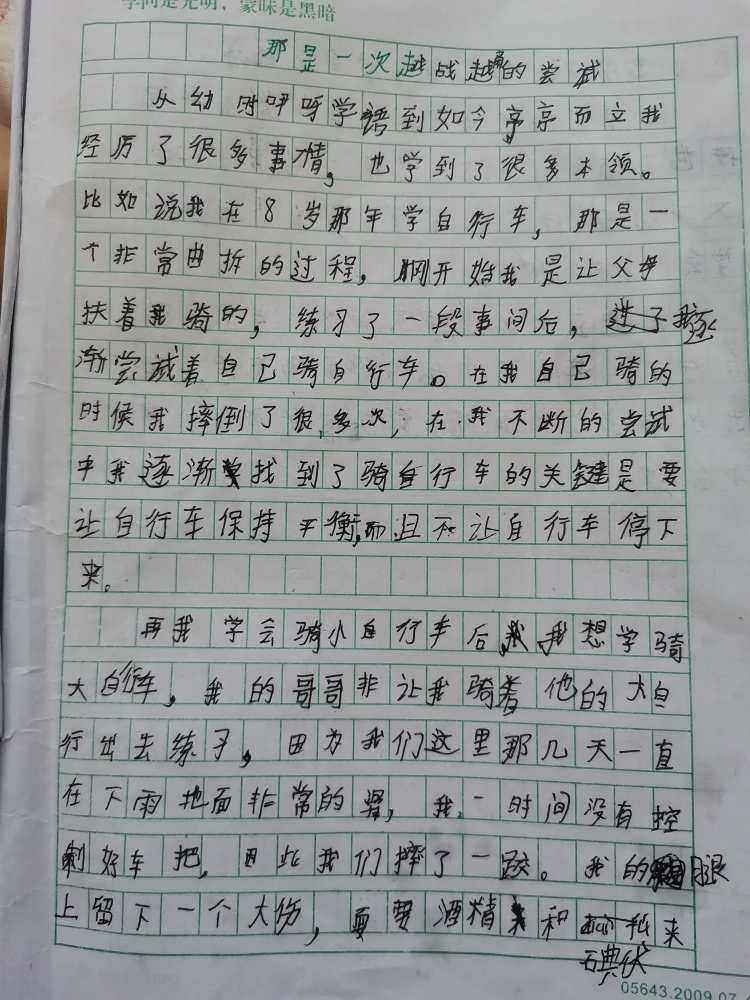 学问是光明，蒙昧是黑暗
那是一次越战越勇的尝试
从幼时咿呀学语到如今亭亭而立我
经历了很多事情，也学到了很多本领。
比如说我在8岁那年学自行车，那是一
个非常曲折的过程，刚开始我是让父母
扶着我骑的，练习了一段事间后，我逐
渐尝试着自己骑自行车。在我自己骑的
时候我摔倒了很多次，在我不断的尝试
中我逐渐找到了骑自行车的关键是要
让自行车保持平衡，而且不让自行车停下
来。
再我学会骑小自行车后，我想学骑
大自行车，我的哥哥非让我骑着他的大自
行出去练习，因为我们这里那几天一直
在下雨地面非常的滑，我一时间没有控
制好车把，因此我们摔了一跤。我的腿
上留下一个大伤，需要酒精和碘伏来
05643.2009.07